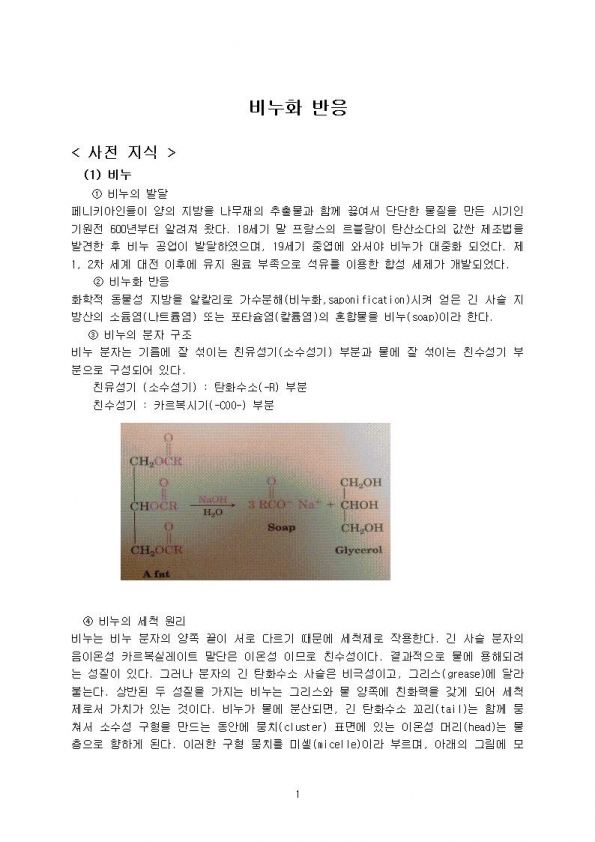 비누화 반응
< 사전 지식 >
(1) 비누
① 비누의 발달
페니키아인들이 양의 지방을 나무재의 추출물과 함께 끓여서 단단한 물질을 만든 시기인
기원전 600년부터 알려져 왔다. 18세기 말 프랑스의 르블랑이 탄산소다의 값싼 제조법을
발견한 후 비누 공업이 발달하였으며, 19세기 중엽에 와서야 비누가 대중화 되었다. 제
1, 2차 세계 대전 이후에 유지 원료 부족으로 석유를 이용한 합성 세제가 개발되었다.
② 비누화 반응
화학적 동물성 지방을 알칼리로 가수분해(비누화,saponification)시켜 얻은 긴 사슬 지
방산의 소듐염(나트륨염) 또는 포타슘염(칼륨염)의 혼합물을 비누(soap)이라 한다.
③ 비누의 분자 구조
비누 분자는 기름에 잘 섞이는 친유성기(소수성기) 부분과 물에 잘 섞이는 친수성기 부
분으로 구성되어 있다.
친유성기 (소수성기) : 탄화수소(-R) 부분
친수성기 : 카르복시기(-COO-) 부분
O
CH₂OCR
O
CHOCR
O
CH₂OCR
A fat
NaOH
H₂O
O
3 RCO⁻ Na⁺ +
Soap
CH₂OH
CHOH
CH₂OH
Glycerol
④ 비누의 세척 원리
비누는 비누 분자의 양쪽 끝이 서로 다르기 때문에 세척제로 작용한다. 긴 사슬 분자의
음이온성 카르복실레이트 말단은 이온성 이므로 친수성이다. 결과적으로 물에 용해되려
는 성질이 있다. 그러나 분자의 긴 탄화수소 사슬은 비극성이고, 그리스(grease)에 달라
붙는다. 상반된 두 성질을 가지는 비누는 그리스와 물 양쪽에 친화력을 갖게 되어 세척
제로서 가치가 있는 것이다. 비누가 물에 분산되면, 긴 탄화수소 꼬리(tail)는 함께 뭉
쳐서 소수성 구형을 만드는 동안에 뭉치(cluster) 표면에 있는 이온성 머리(head)는 물
층으로 향하게 된다. 이러한 구형 뭉치를 미셀(micelle)이라 부르며, 아래의 그림에 모
1